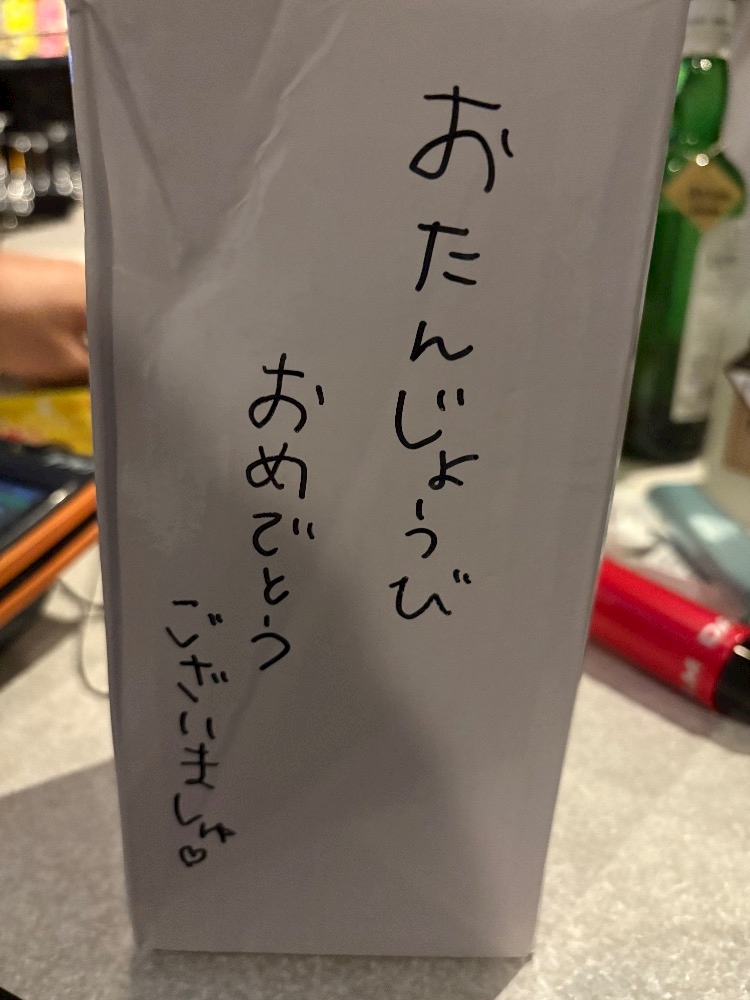 おたんじょうび
おめでとう
ございましゅ♡